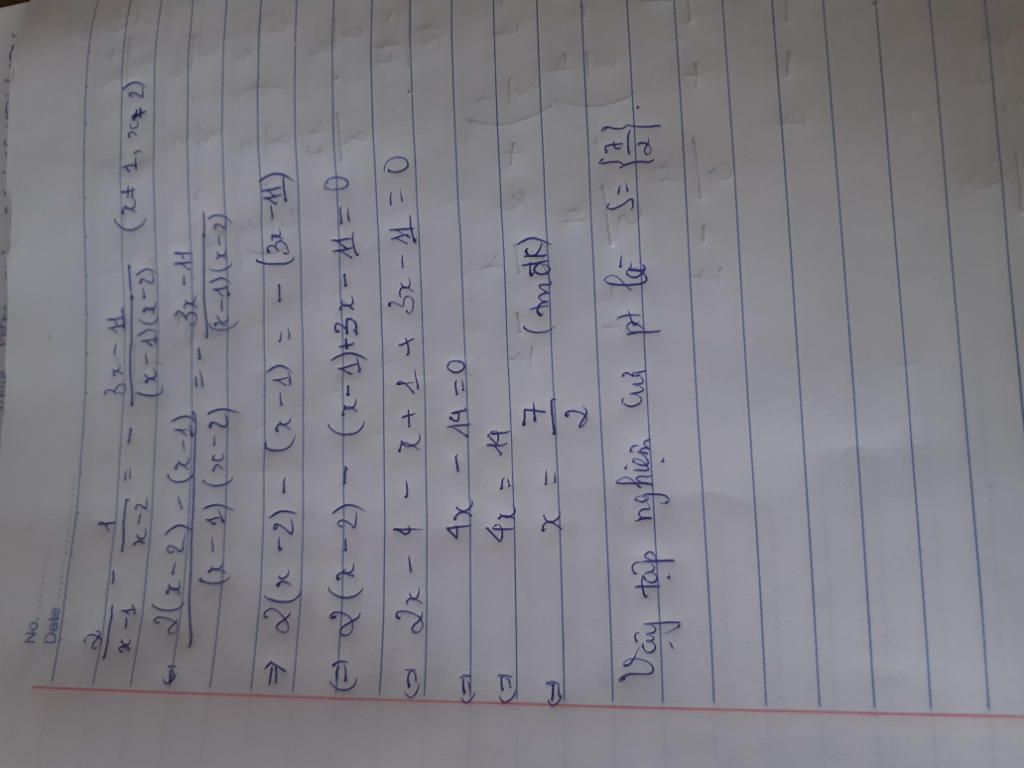 No. ............
Date ............
2/(x-1) - 1/(x-2) = - (3x-11)/((x-1)(x-2)) (x≠1, x≠2)
⇔ (2(x-2)-(x-1))/((x-1)(x-2)) = - (3x-11)/((x-1)(x-2))
⇒ 2(x-2) - (x-1) = - (3x-11)
⇔ 2(x-2) - (x-1)+3x-11=0
⇔ 2x-4-x+1+3x-11=0
⇔ 4x-14=0
⇔ 4x=14
⇔ x = 7/2 (tmđk)
Vậy tập nghiệm của pt là S={7/2}.